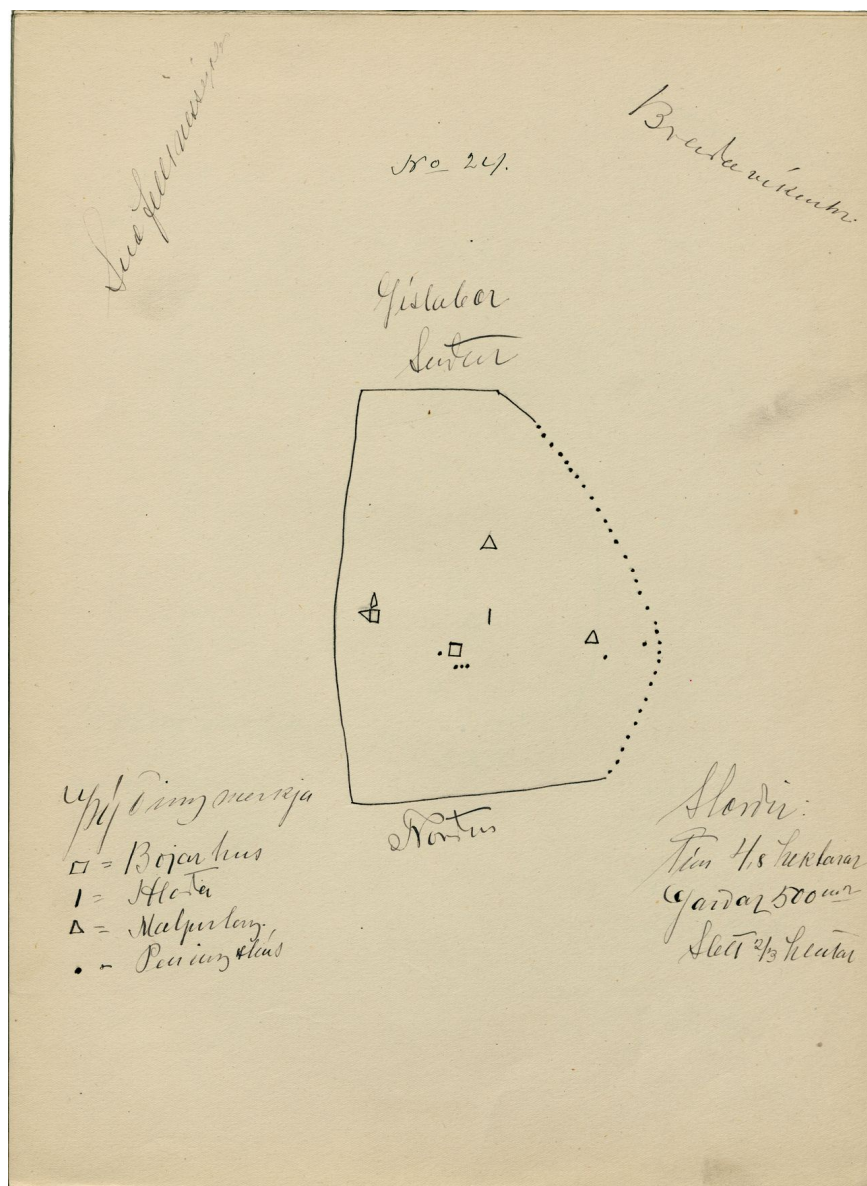 Snæfellsnessýsla
Breiðavíkurhr.
No 24.
Gíslabær
Suður
Norður
Þýðing merkja
□ = Bæjarhús
| = Hlaða
△ = Matjurtag.
• = Peningshús
Stærðir:
Tún 4,8 hektarar
Garðar 500 m2
Slétt 2/3 hlutar